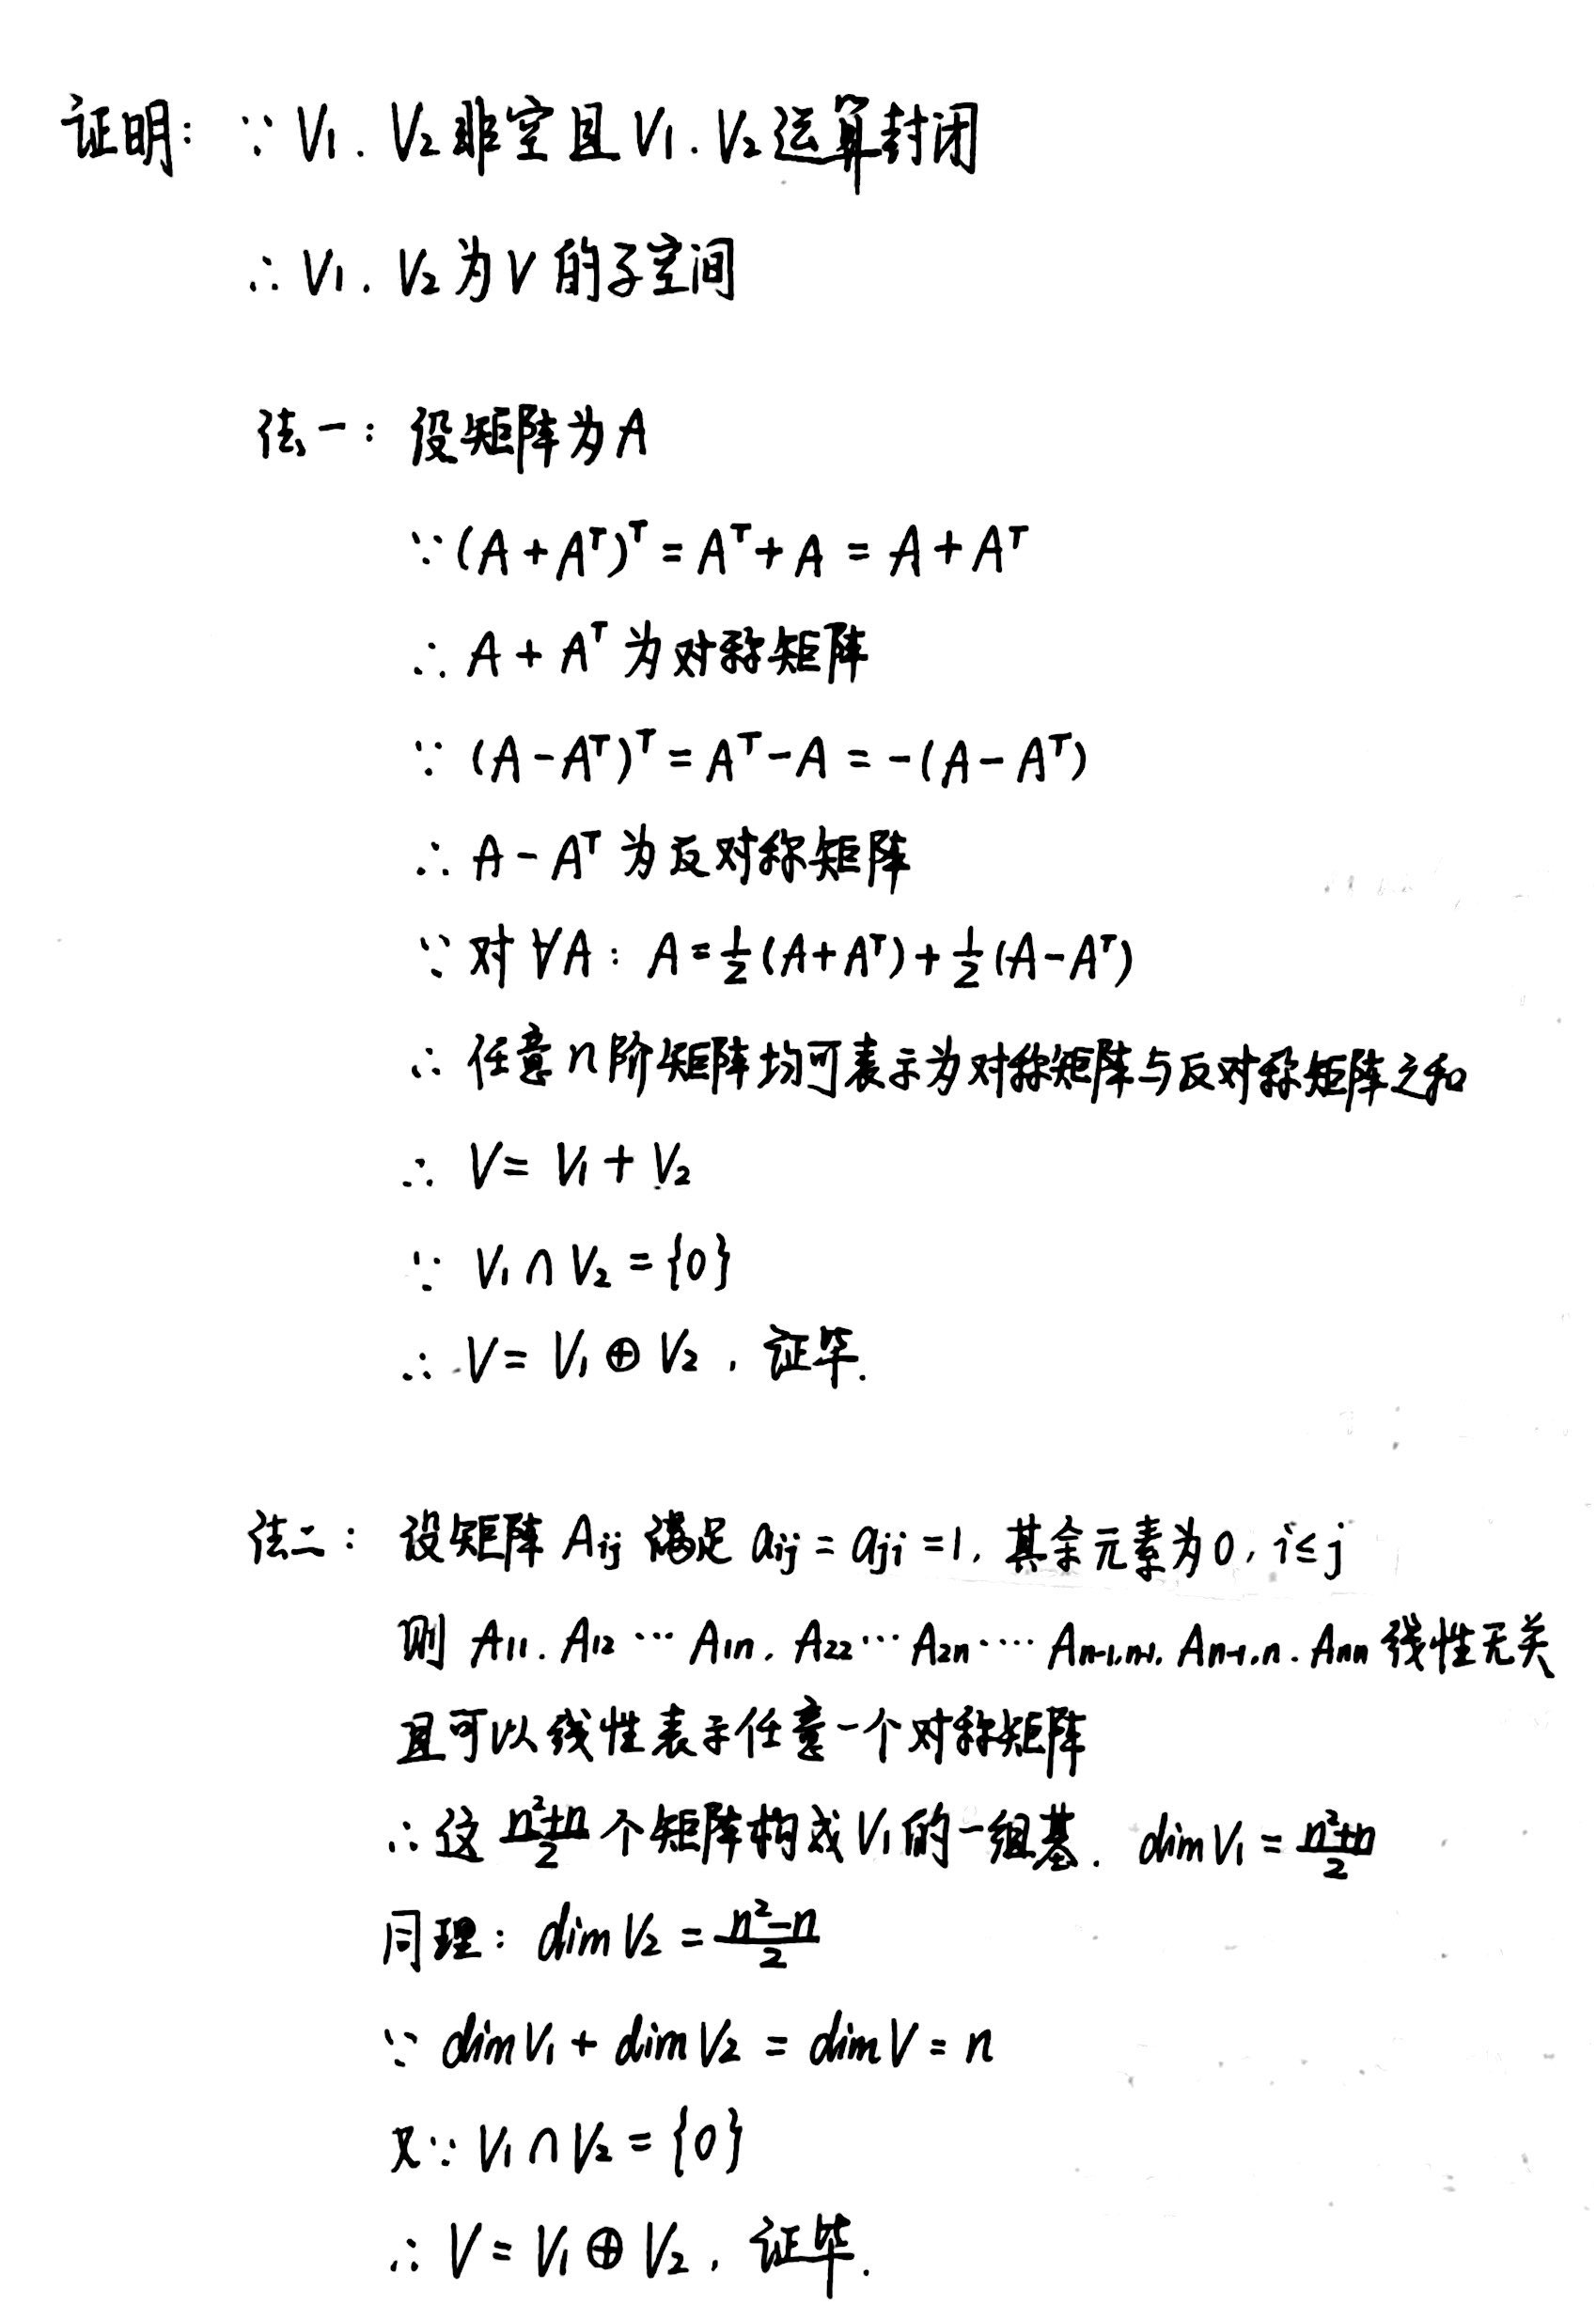 证明: ∵ V₁. V₂非空且V₁. V₂运算封闭
∴ V₁. V₂为V的子空间
法一: 设矩阵为A
∵ (A + Aᵀ)ᵀ = Aᵀ + A = A + Aᵀ
∴ A + Aᵀ 为对称矩阵
∵ (A - Aᵀ)ᵀ = Aᵀ - A = -(A - Aᵀ)
∴ A - Aᵀ 为反对称矩阵
∵ 对∀A: A = 1/2(A+Aᵀ) + 1/2(A-Aᵀ)
∴ 任意n阶矩阵均可表示为对称矩阵与反对称矩阵之和
∴ V = V₁ + V₂
∵ V₁ ∩ V₂ = {0}
∴ V = V₁ ⊕ V₂, 证毕.
法二: 设矩阵 Aij 满足 aij = aji = 1, 其余元素为0, i≤j
则 A11. A12 ⋯ A1n. A22 ⋯ A2n ⋯⋯ An-1,n-1. An-1,n. Ann 线性无关
且可以线性表示任意一个对称矩阵
∴ 这 (n²+n)/2 个矩阵构成V₁的一组基. dim V₁ = (n²+n)/2
同理: dim V₂ = (n²-n)/2
∵ dim V₁ + dim V₂ = dim V = n
又∵ V₁ ∩ V₂ = {0}
∴ V = V₁ ⊕ V₂, 证毕.